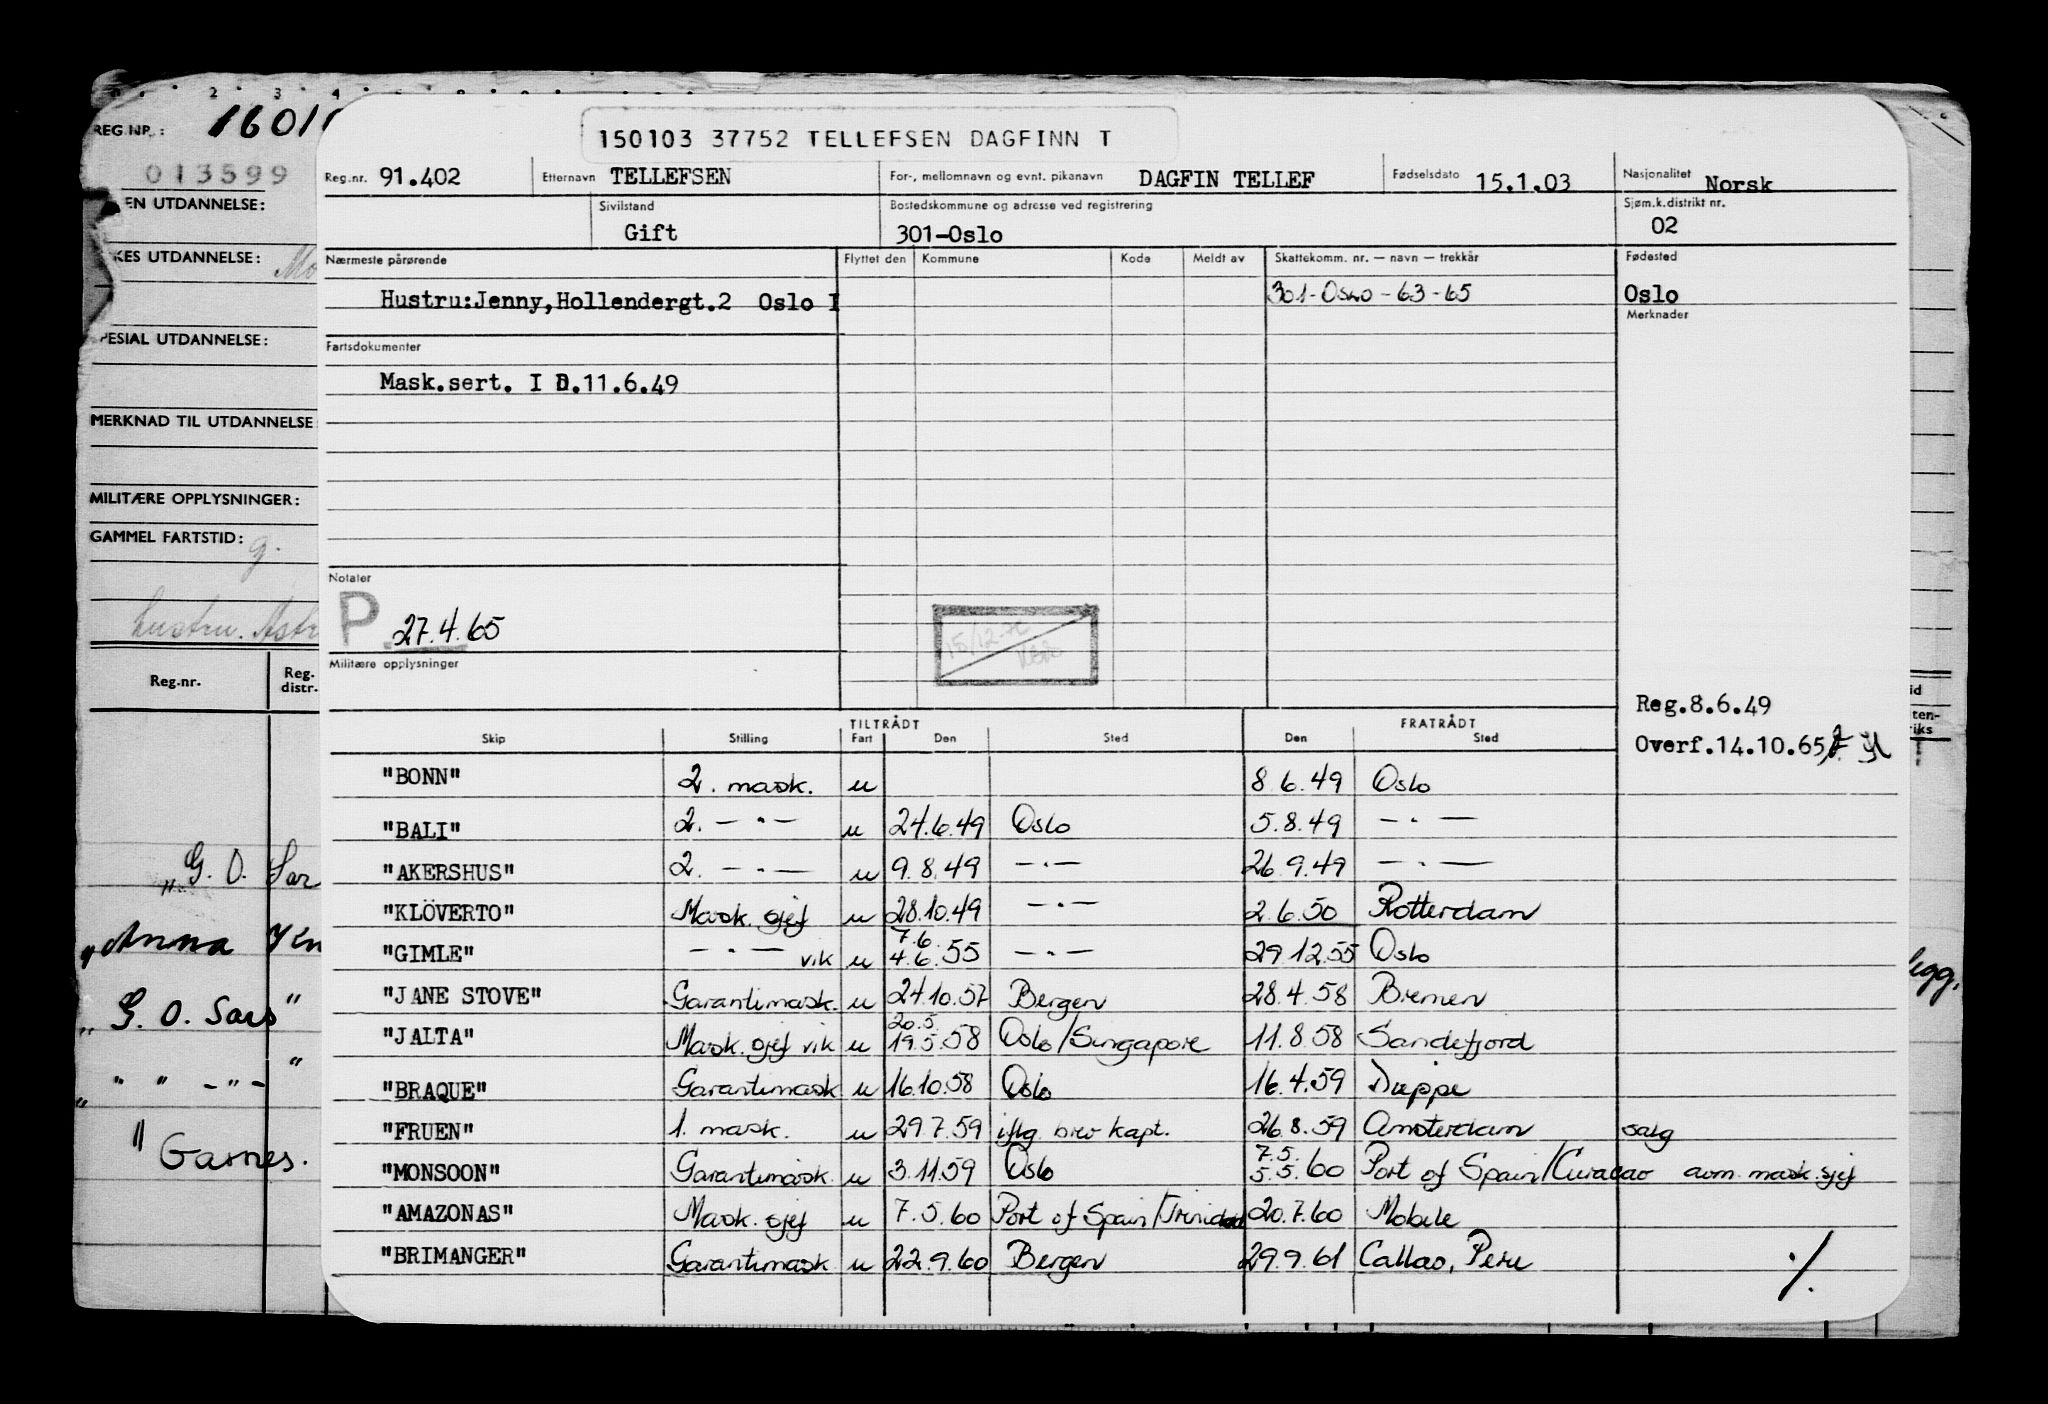 REG.NR.: 1601
150103 37752 TELLEFSEN DAGFINN T
013599
Reg.nr. 91.402 Etternavn TELLEFSEN For-, mellomnavn og evnt. pikanavn DAGFIN TELLEF Fødselsdato 15.1.03 Nasjonalitet Norsk
EN UTDANNELSE:
Sivilstand Gift Bostedskommune og adresse ved registrering 301-Oslo Sjøm.k.distrikt nr. 02
KES UTDANNELSE:
Nærmeste pårørende Flyttet den Kommune Kode Meldt av Skattekomm. nr. — navn — trekkår Fødested
Hustru:Jenny,Hollendergt.2 Oslo I 301-Oslo-63-65 Oslo
Merknader
PESIAL UTDANNELSE:
Fartsdokumenter
Mask.sert. I D.11.6.49
MERKNAD TIL UTDANNELSE
MILITÆRE OPPLYSNINGER:
GAMMEL FARTSTID: g.
Notater
P. 27.4.65
15/12-72
Hustru. Astr
Militære opplysninger
Reg.nr. Reg. distr.
Reg.8.6.49
Overf.14.10.65
TILTRÅDT FRATRÅDT
Skip Stilling Fart Den Sted Den Sted
"BONN" 2. mask. u 8.6.49 Oslo
"BALI" 2. —·— u 24.6.49 Oslo 5.8.49 —·—
"AKERSHUS" 2. —·— u 9.8.49 —·— 26.9.49 —·—
"KLÖVERTO" Mask.sjef u 28.10.49 —·— 2.6.50 Rotterdam
"GIMLE" —·— vik u 7.6. 4.6.55 —·— 29.12.55 Oslo
"JANE STOVE" Garantimask. u 24.10.57 Bergen 28.4.58 Bremen
"JALTA" Mask.sjef vik u 20.5. 19.5.58 Oslo/Singapore 11.8.58 Sandefjord
"BRAQUE" Garantimask u 16.10.58 Oslo 16.4.59 Dieppe
"FRUEN" 1. mask. u 29.7.59 iflg. brev kapt. 26.8.59 Amsterdam salg
"MONSOON" Garantimask. u 3.11.59 Oslo 7.5. 5.5.60 Port of Spain/Curacao avm. mask.sjef
"AMAZONAS" Mask.sjef u 7.5.60 Port of Spain/Trinidad 20.7.60 Mobile
"BRIMANGER" Garantimask u 22.9.60 Bergen 29.9.61 Callao, Peru ./.
"G. O. Sar
"Anna
"G. O. Sars"
" " -"- "
" Garnes.